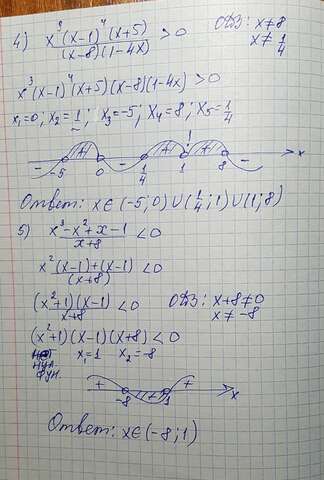 4) x³(x-1)⁴(x+5) / (x-8)(1-4x) > 0   ОДЗ: x≠8
x≠1/4
x³(x-1)⁴(x+5)(x-8)(1-4x)>0
x₁=0; x₂=1; x₃=-5; x₄=8; x₅=1/4
- + - + + -
-5 0 1/4 1 8 x
Ответ: x∈(-5;0)∪(1/4;1)∪(1;8)
5) x³-x²+x-1 / x+8 <0
x²(x-1)+(x-1) / (x+8) <0
(x²+1)(x-1) / x+8 <0   ОДЗ: x+8≠0
x≠-8
(x²+1)(x-1)(x+8)<0
нет x₁=1 x₂=-8
нул.
фун.
+ - +
-8 1 x
Ответ: x∈(-8;1)